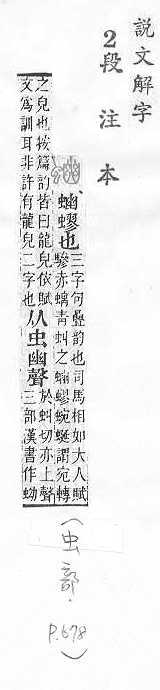 說文解字
2段注本
蟉也三字句疊韵也司馬相如大人賦
驂赤螭青虯之蟉蜿蜒謂宛轉
之皃也按篇韵皆曰龍皃依賦
文爲訓耳非許有龍皃二字也从虫幽聲於虯切亦上聲
三部漢書作蚴
(虫部.
P.678)